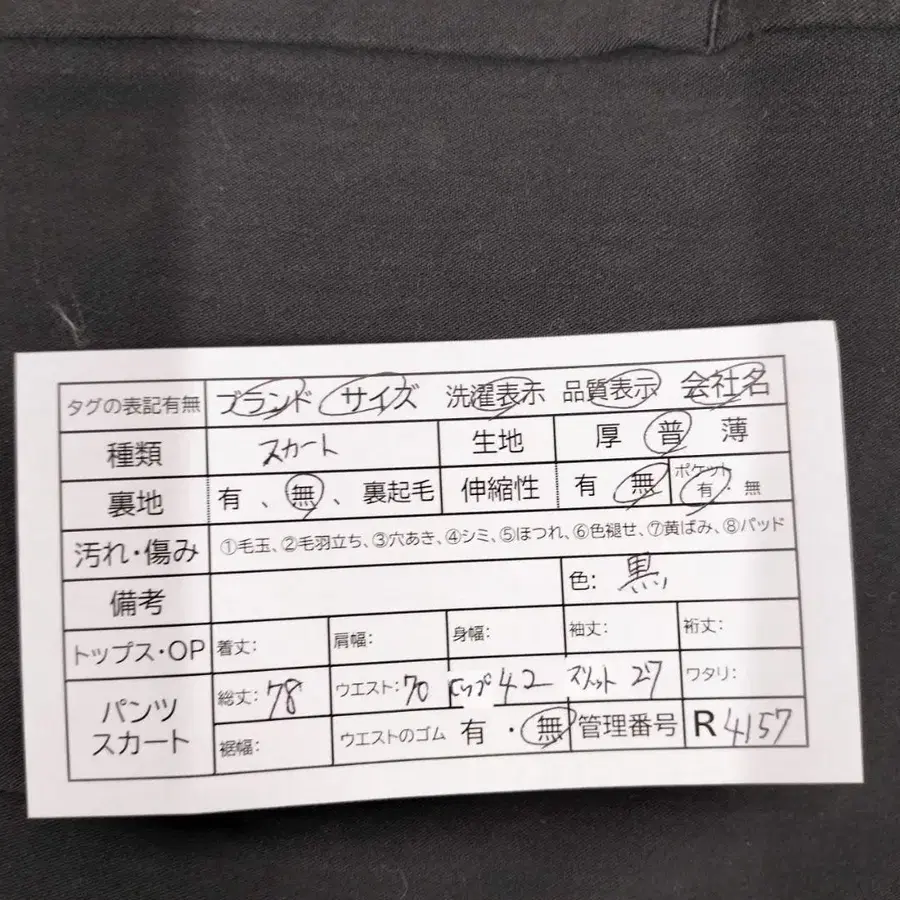 タグの表記有無 ブランド サイズ 洗濯表示 品質表示 会社名
種類 スカート 生地 厚 普 薄
裏地 有 、 無 、 裏起毛 伸縮性 有 無 ポケット 有 ・ 無
汚れ・傷み ①毛玉、②毛羽立ち、③穴あき、④シミ、⑤ほつれ、⑥色褪せ、⑦黄ばみ、⑧パッド
備考 色: 黒
トップス・OP 着丈: 肩幅: 身幅: 袖丈: 裄丈:
パンツ スカート 総丈: 78 ウエスト: 70 ヒップ 42 スリット 27 ワタリ:
裾幅: ウエストのゴム 有 ・ 無 管理番号 R 4157